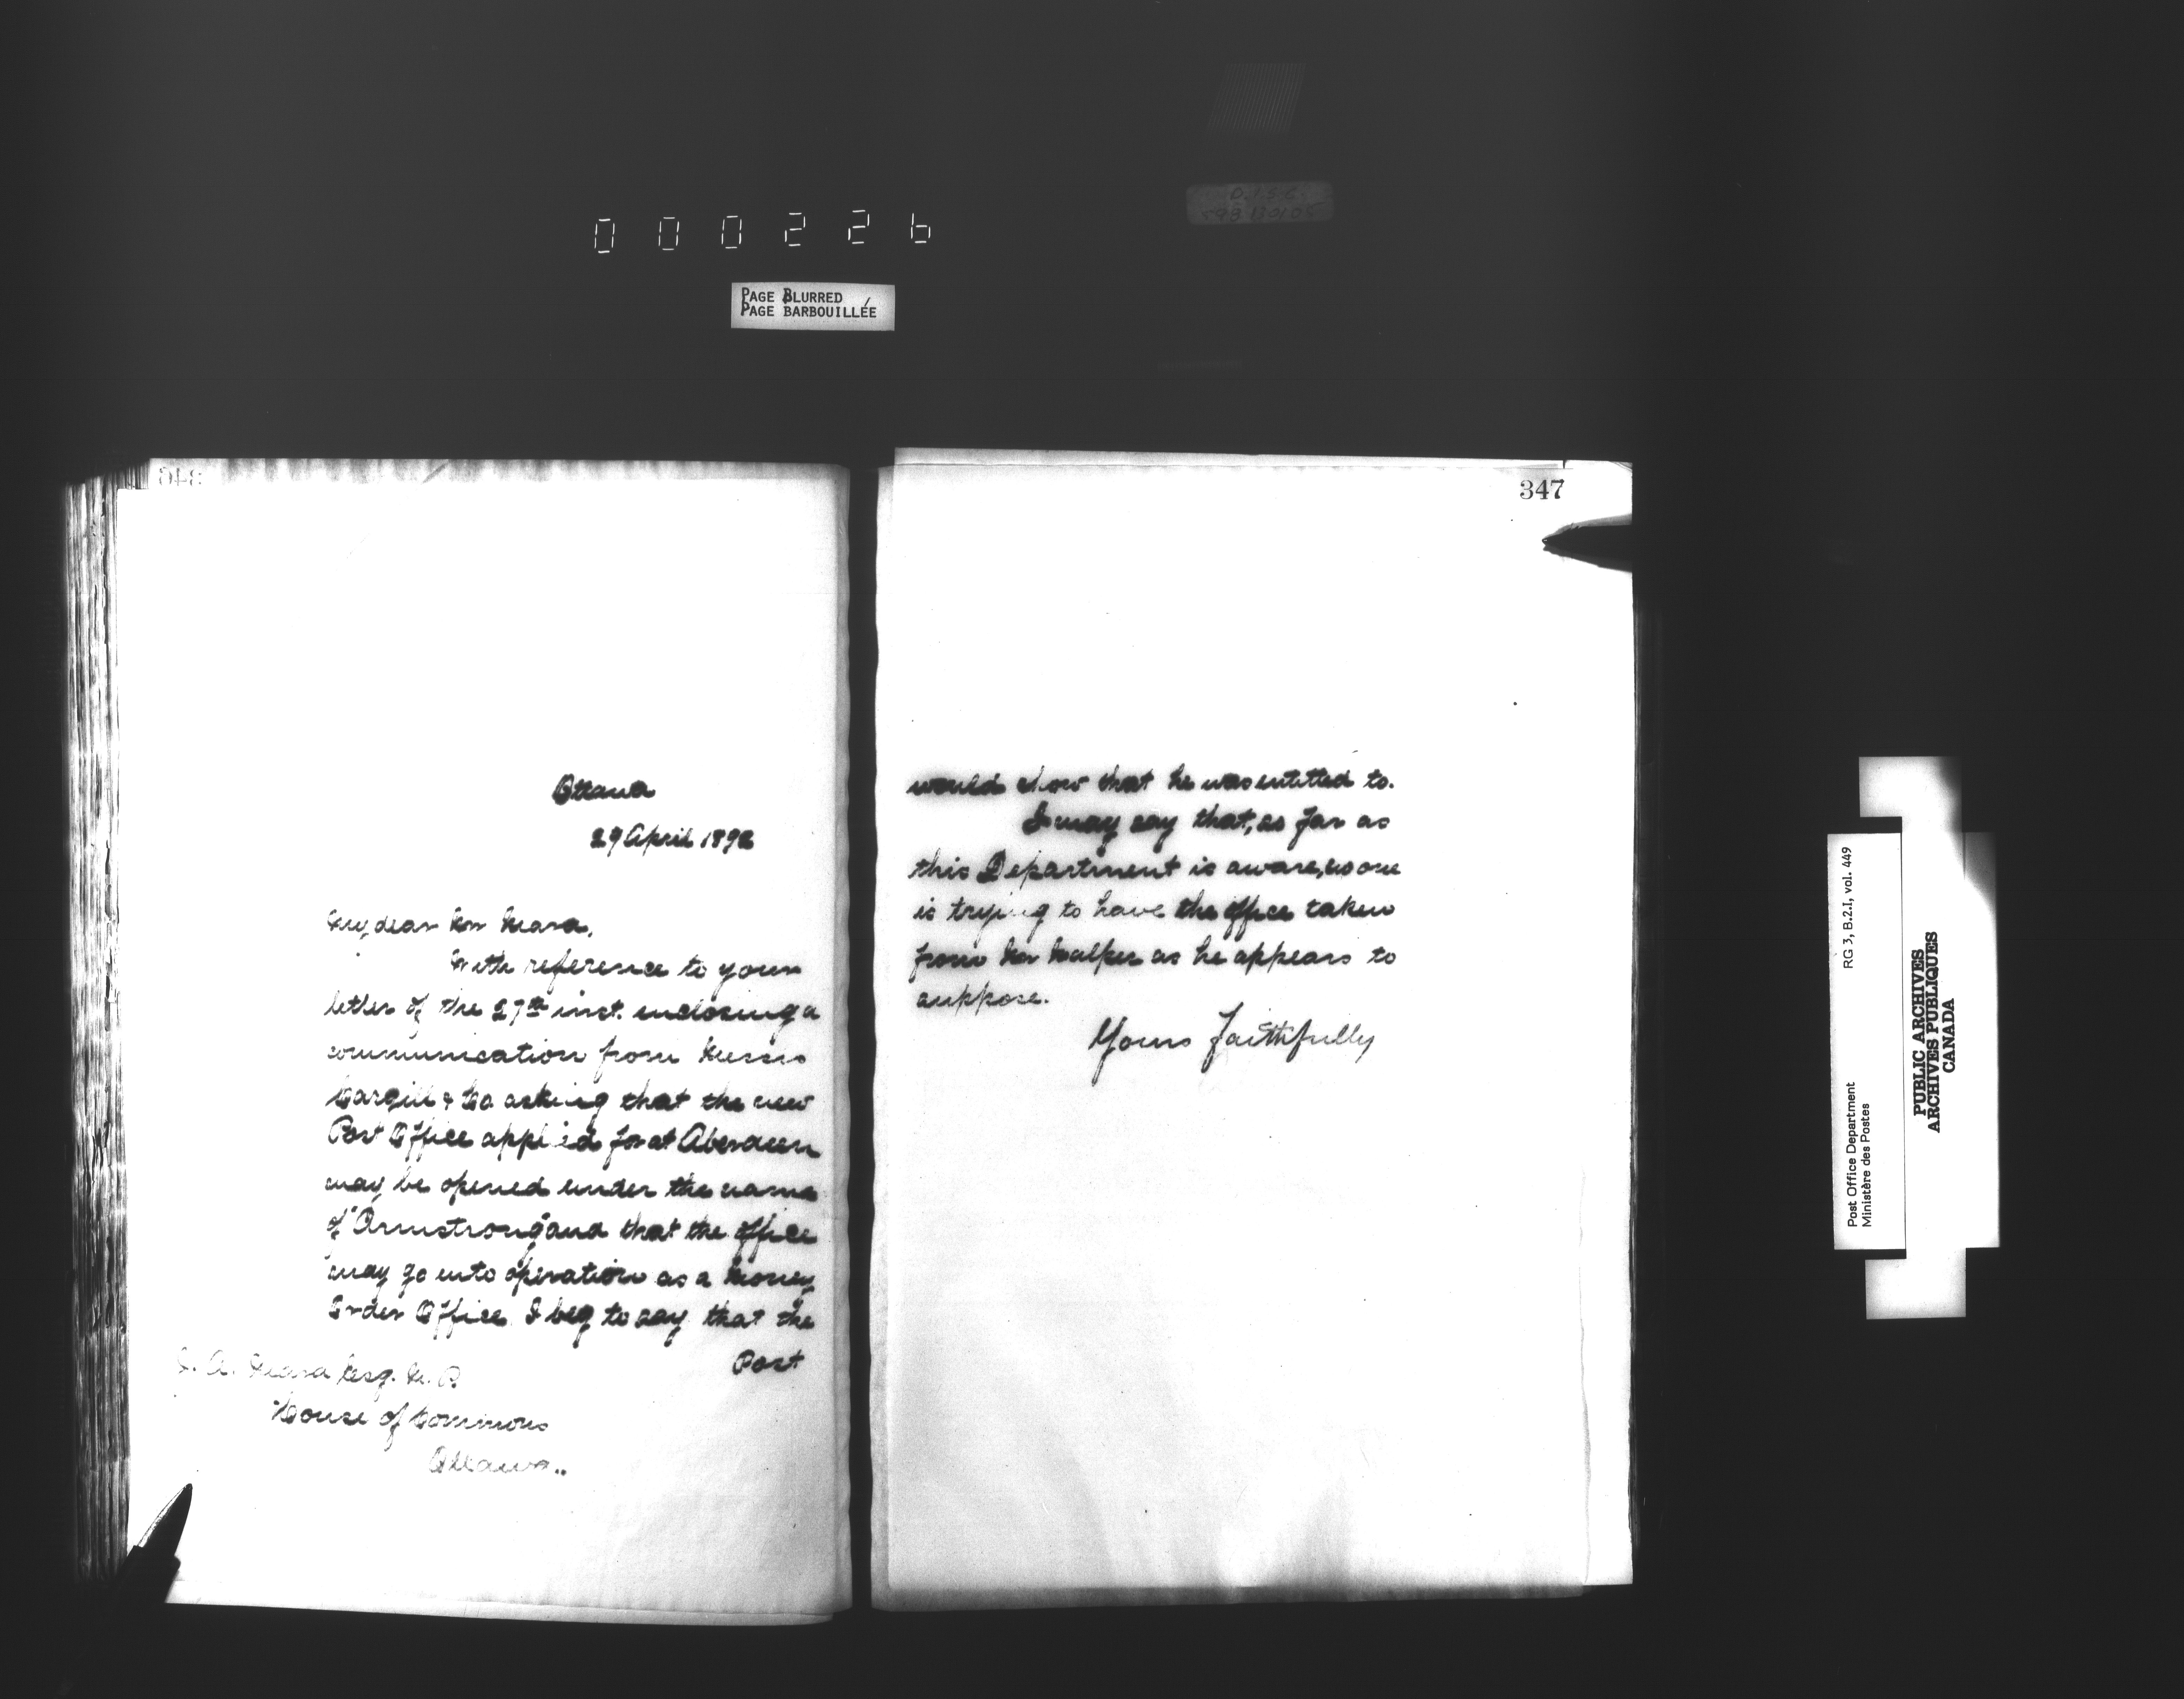 000226
PAGE BLURRED
PAGE BARBOUILLÉE
346
Ottawa
29 April 1892
My dear Mr Mara,
With reference to your
letter of the 27th inst. inclosing a
communication from Messrs
Cargill & Co asking that the new
Post Office applied for at Aberdeen
may be opened under the name
of "Armstrong" and that the office
may go into operation as a Money
Order Office. I beg to say that the
Post
J. A. Mara Esq. M. P.
House of Commons
Ottawa..
347
would show that he was entitled to.
I may say that, as far as
this Department is aware, no one
is trying to have the office taken
from Mr as he appears to
suppose.
Yours faithfully
RG 3, B.2.I, vol. 449
Post Office Department
Ministère des Postes
PUBLIC ARCHIVES
ARCHIVES PUBLIQUES
CANADA